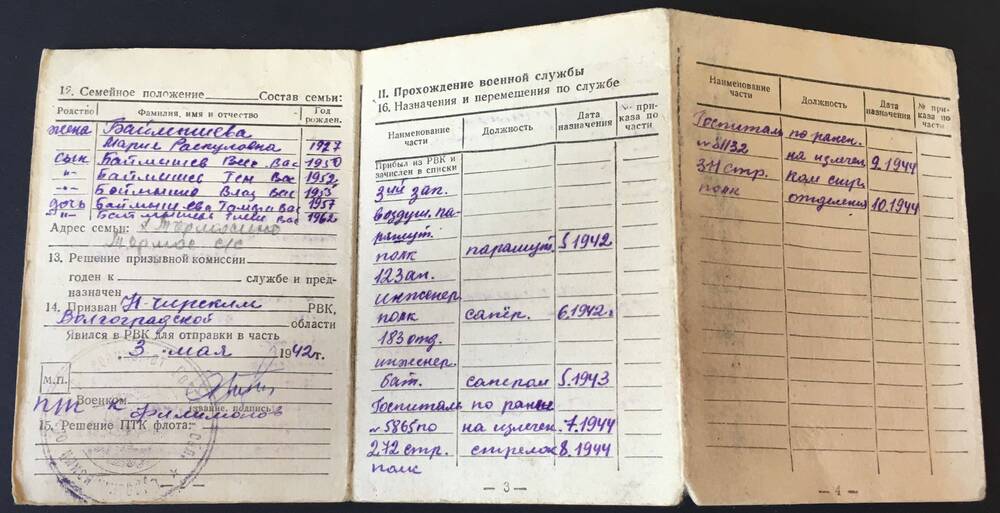 12. Семейное положение Состав семьи:
Родство Фамилия, имя и отчество Год рожден.
жена Баймышева
Мария 1927
сын Баймышев Вас 1950
-"- Баймышев Ген Вас 1952
-"- Баймышев Влад Вас 1953
дочь Баймышева Тамара Вас 1957
-"- Вас 1962
Адрес семьи:
с/с
13. Решение призывной комиссии
годен к службе и пред-
назначен
14. Призван Н-Чирским РВК,
Волгоградской области
Явился в РВК для отправки в часть
3 мая 1942 г.
М.П.
Военком
звание, подпись
п/п-к Филимонов
15. Решение ПТК флота:
II. Прохождение военной службы
16. Назначения и перемещения по службе
Наименование части Должность Дата назначения № приказа по части
Прибыл из РВК и
зачислен в списки
3ий зап.
воздуш. па-
рашут.
полк парашут. 5.1942
12 зап.
инженер.
полк сапёр. 6.1942г.
183 отд.
инженер.
бат. сапером 5.1943
Госпиталь по ранен
№5865 по на излечен. 7.1944
272 стр. стрелок 8.1944
полк
— 3 —
Наименование части Должность Дата назначения № приказа по части
Госпиталь по ранен.
на излечен 9.1944
311 стр. ком стр.
полк отделения 10.1944
— 4 —